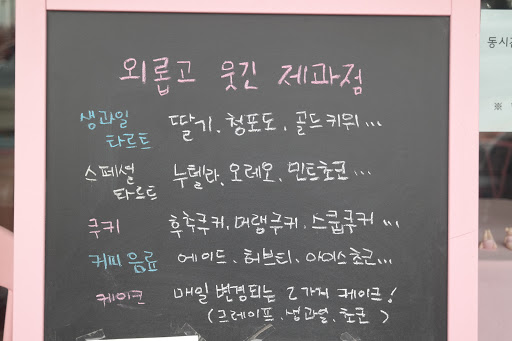 외롭고 웃긴 제과점
생과일 타르트 딸기, 청포도, 골드키위...
스페셜 타르트 누텔라, 오레오, 민트초코...
쿠키 후추쿠키, 머랭쿠키, 스쿱쿠키...
커피 음료 에이드, 허브티, 아이스초코...
케이크 매일 변경되는 2가지 케이크!
(크레이프, 생과일, 초코)
동시
※